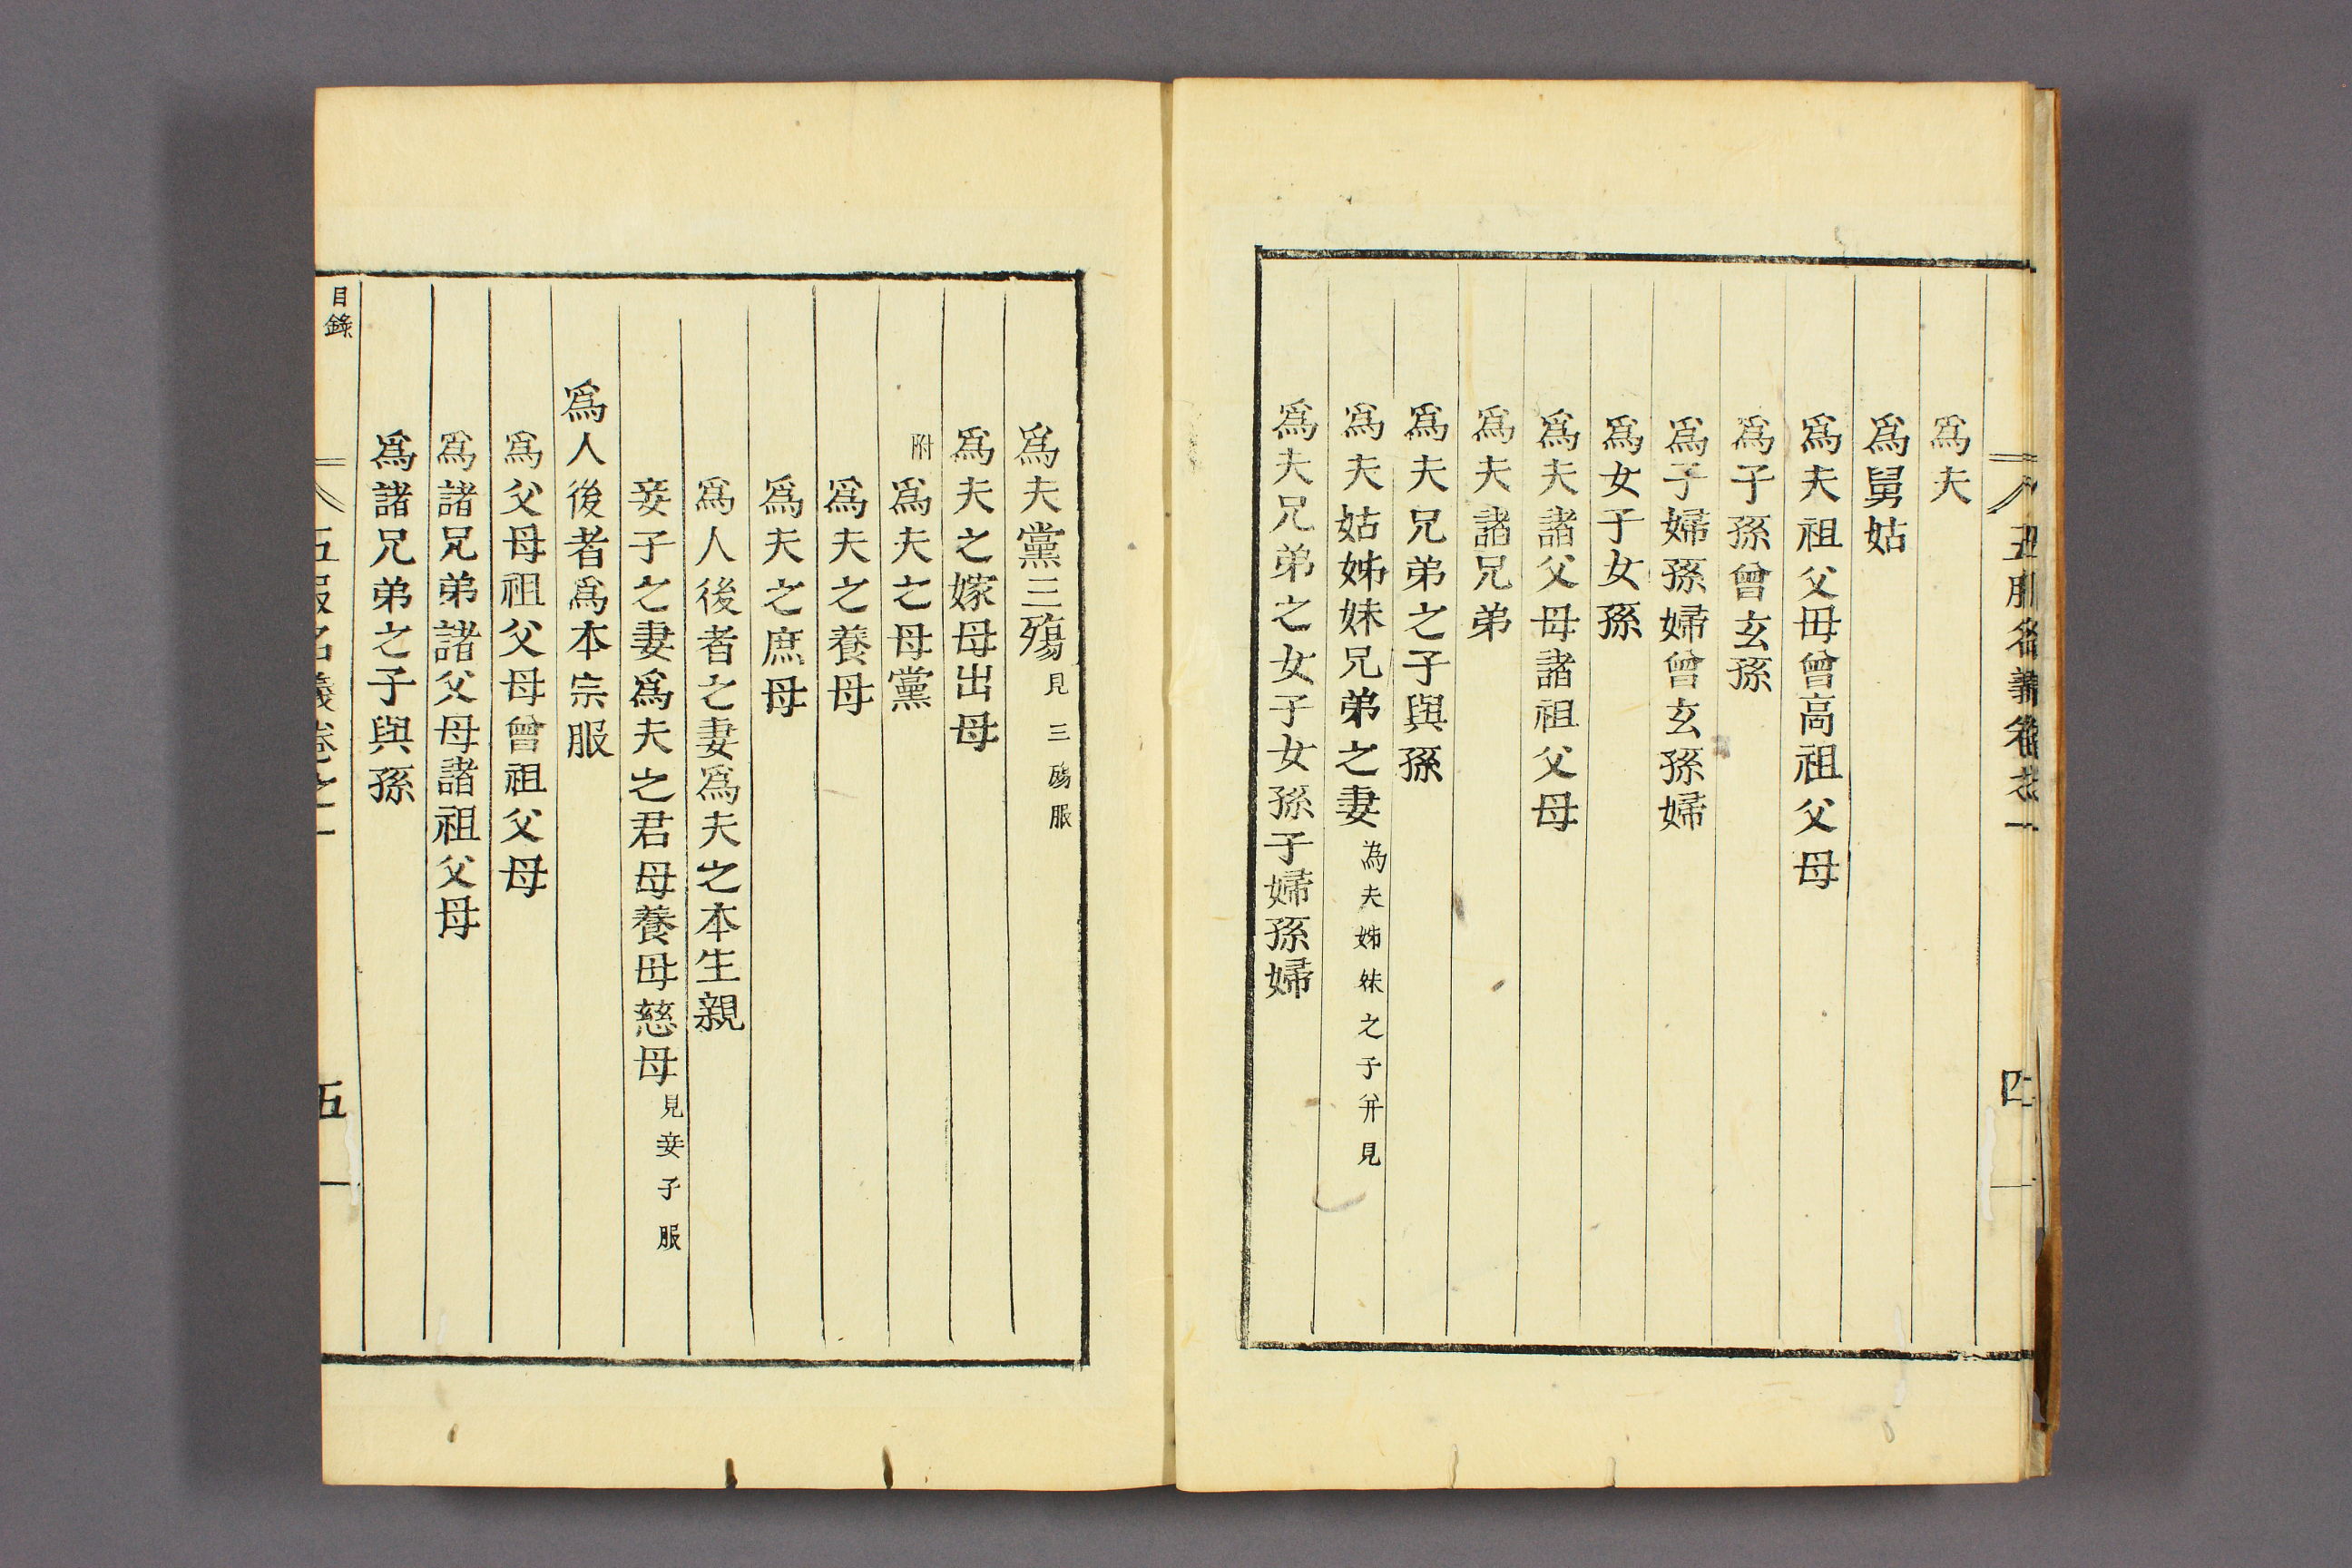 爲夫
爲舅姑
爲夫祖父母曾高祖父母
爲子孫曾玄孫
爲子婦孫婦曾玄孫婦
爲女子女孫
爲夫諸父母諸祖父母
爲夫諸兄弟
爲夫兄弟之子與孫
爲夫姑姊妹兄弟之妻為夫姊妹之子并見
爲夫兄弟之女子女孫子婦孫婦
四
爲夫黨三殤見三殤服
爲夫之嫁母出母
附爲夫之母黨
爲夫之養母
爲夫之庶母
爲人後者之妻爲夫之本生親
妾子之妻爲夫之君母養母慈母見妾子服
爲人後者爲本宗服
爲父母祖父母曾祖父母
爲諸兄弟諸父母諸祖父母
爲諸兄弟之子與孫
目錄
五服名義卷之一
五